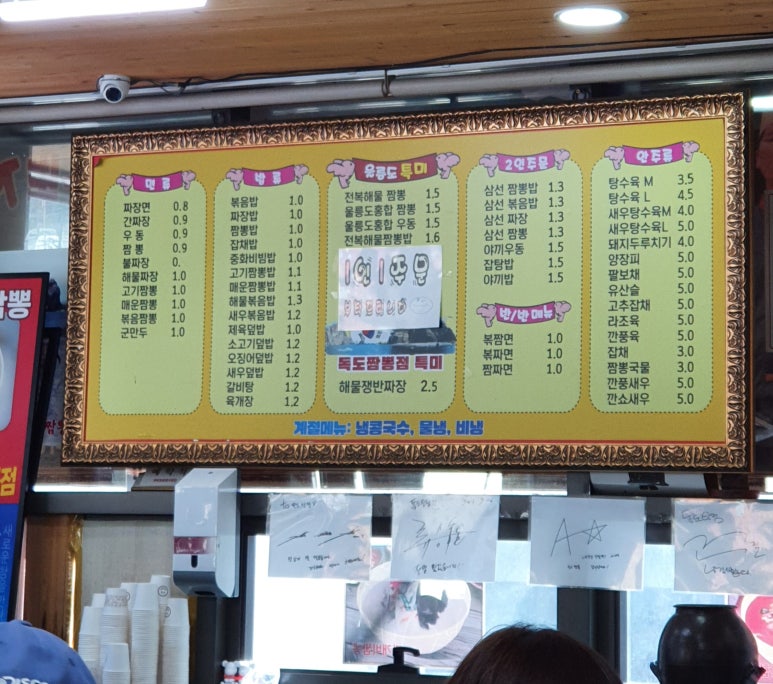 면 류
짜장면 0.8
간짜장 0.9
우 동 0.9
짬 뽕 0.9
불짜장 0.
해물짜장 1.0
고기짬뽕 1.0
매운짬뽕 1.0
볶음짬뽕 1.0
군만두 1.0
밥 류
볶음밥 1.0
짜장밥 1.0
짬뽕밥 1.0
잡채밥 1.0
중화비빔밥 1.0
고기짬뽕밥 1.1
매운짬뽕밥 1.1
해물볶음밥 1.3
새우볶음밥 1.2
제육덮밥 1.0
소고기덮밥 1.2
오징어덮밥 1.2
새우덮밥 1.2
갈비탕 1.2
육개장 1.2
울릉도 특미
전복해물 짬뽕 1.5
울릉도홍합 짬뽕 1.5
울릉도홍합 우동 1.5
전복해물짬뽕밥 1.6
1인 1주문
부탁드립니다
독도짬뽕점 특미
해물쟁반짜장 2.5
2인주문
삼선 짬뽕밥 1.3
삼선 볶음밥 1.3
삼선 짜장 1.3
삼선 짬뽕 1.3
야끼우동 1.5
잡탕밥 1.5
야끼밥 1.5
반/반 메뉴
볶짬면 1.0
볶짜면 1.0
짬짜면 1.0
안주류
탕수육 M 3.5
탕수육 L 4.5
새우탕수육M 4.0
새우탕수육L 5.0
돼지두루치기 4.0
양장피 5.0
팔보채 5.0
유산슬 5.0
고추잡채 5.0
라조육 5.0
깐풍육 5.0
잡채 3.0
짬뽕국물 3.0
깐풍새우 5.0
깐쇼새우 5.0
계절메뉴: 냉콩국수, 물냉, 비냉
짬뽕
점